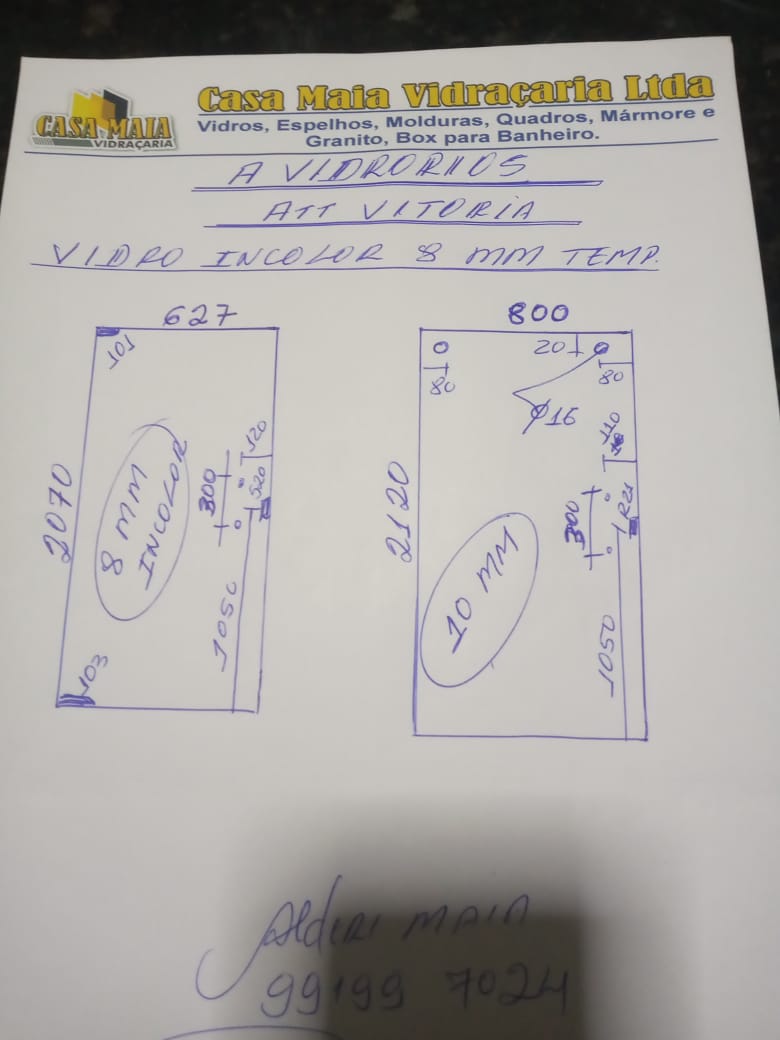 CASA MAIA
VIDRAÇARIA
Casa Maia Vidraçaria Ltda
Vidros, Espelhos, Molduras, Quadros, Mármore e
Granito, Box para Banheiro.
A VIDRORIOS
ATT VITORIA
VIDRO INCOLOR 8 MM TEMP.
627
101
2070
8 MM
INCOLOR
300
120
520
1050
103
800
80
20
80
Ø16
110
2120
300
10 MM
1050
Alderi MAIA
99199 7024